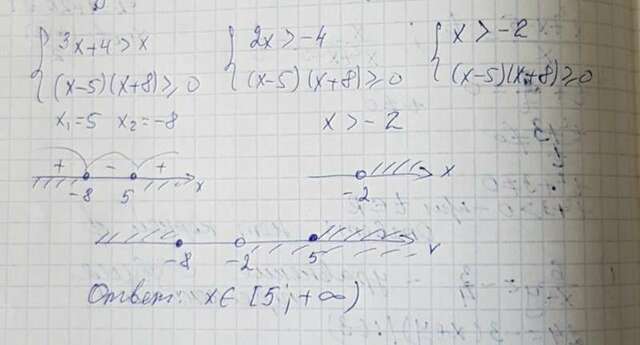 { 3x+4>x { 2x>-4 { x>-2
(x-5)(x+8)≥0 (x-5)(x+8)≥0 (x-5)(x+8)≥0
x₁=5 x₂=-8 x>-2
+ - +
-8 5 x -2 x
-8 -2 5 x
Ответ: x∈[5;+∞)